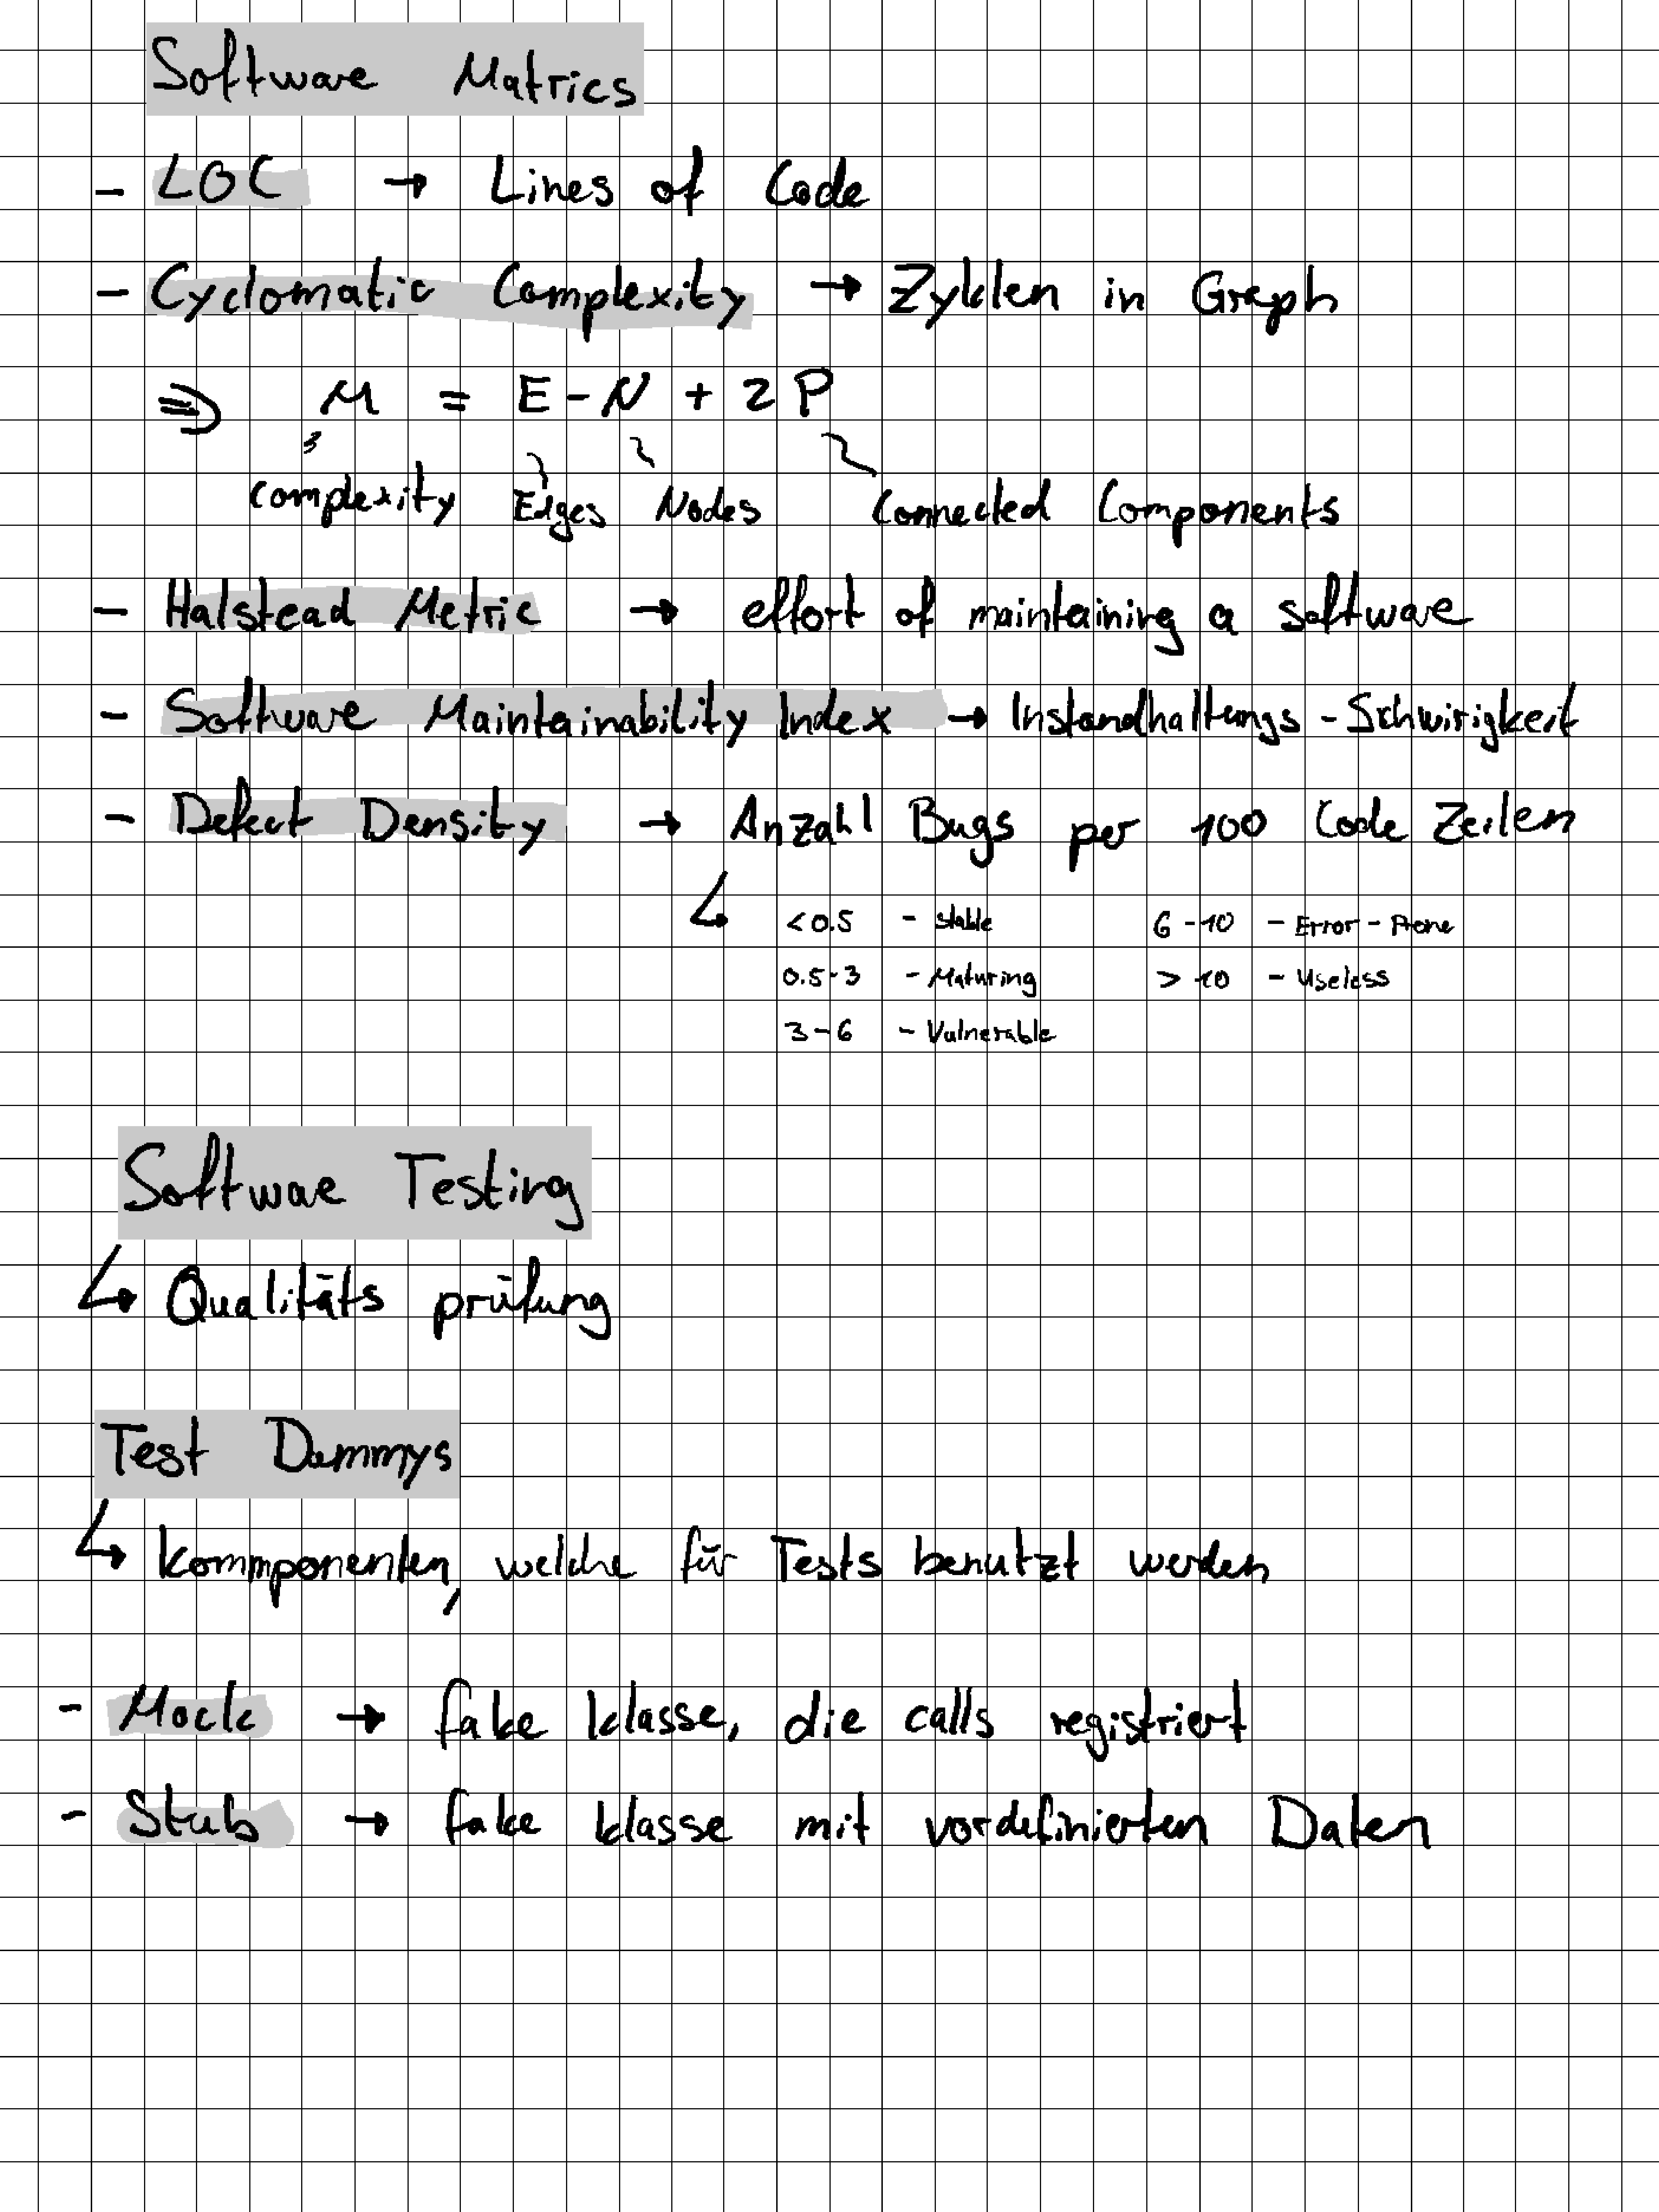 Software Matrics
- LOC → Lines of Code
- Cyclomatic Complexity → Zyklen in Graph
⇒ M = E - N + 2 P
complexity Edges Nodes Connected Components
- Halstead Metric → effort of maintaining a software
- Software Maintainability Index → Instandhaltungs - Schwirigkeit
- Defect Density → Anzahl Bugs per 100 Code Zeilen
↳ <0.5 - stable 6 - 10 - Error - Prone
0.5 - 3 - Maturing > 10 - Useless
3 - 6 - Vulnerable
Software Testing
↳ Qualitäts prüfung
Test Dummys
↳ Kommponenten, welche für Tests benutzt werden
- Mock → fake klasse, die calls registriert
- Stub → fake klasse mit vordefinierten Daten